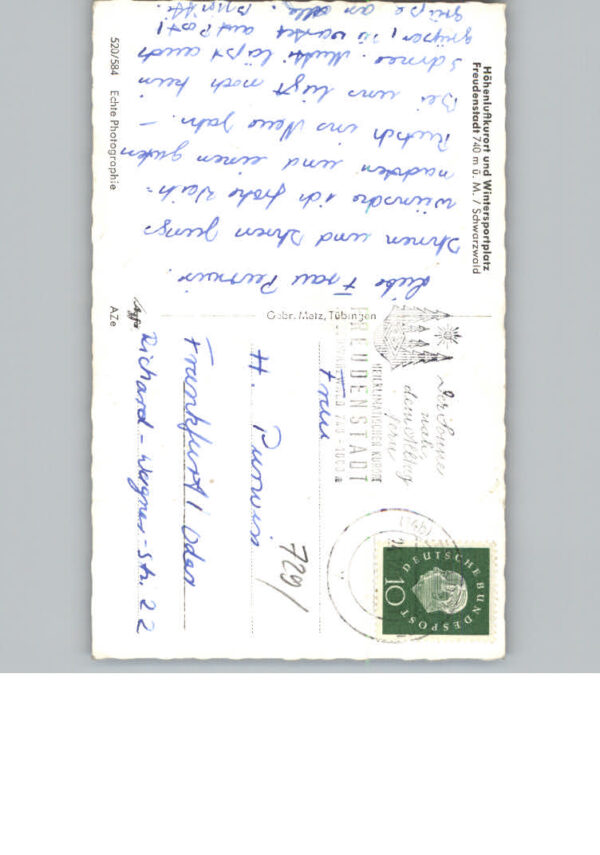 Höhenluftkurort und Wintersportplatz
Freudenstadt 740 m ü. M. / Schwarzwald
Liebe Frau
Ihnen und Ihren Jungs
wünsche ich frohe Weih-
nachten und einen guten
Rutsch ins Neue Jahr. —
Bei uns liegt noch kein
Schnee. Mutti läßt auch
grüßen, sie wartet auf Post!
Grüße an alle.
520/584 Echte Photographie
Gebr. Metz, Tübingen
AZe
Der Sonne
nahe
dem Alltag
fern
HEILKLIMATISCHER KURORT
FREUDENSTADT
SCHWARZWALD 740-1000 m
DEUTSCHE BUNDESPOST
10
Frau
H. Purwiss
729/
Frankfurt / Oder
Richard-Wagner-Str. 22